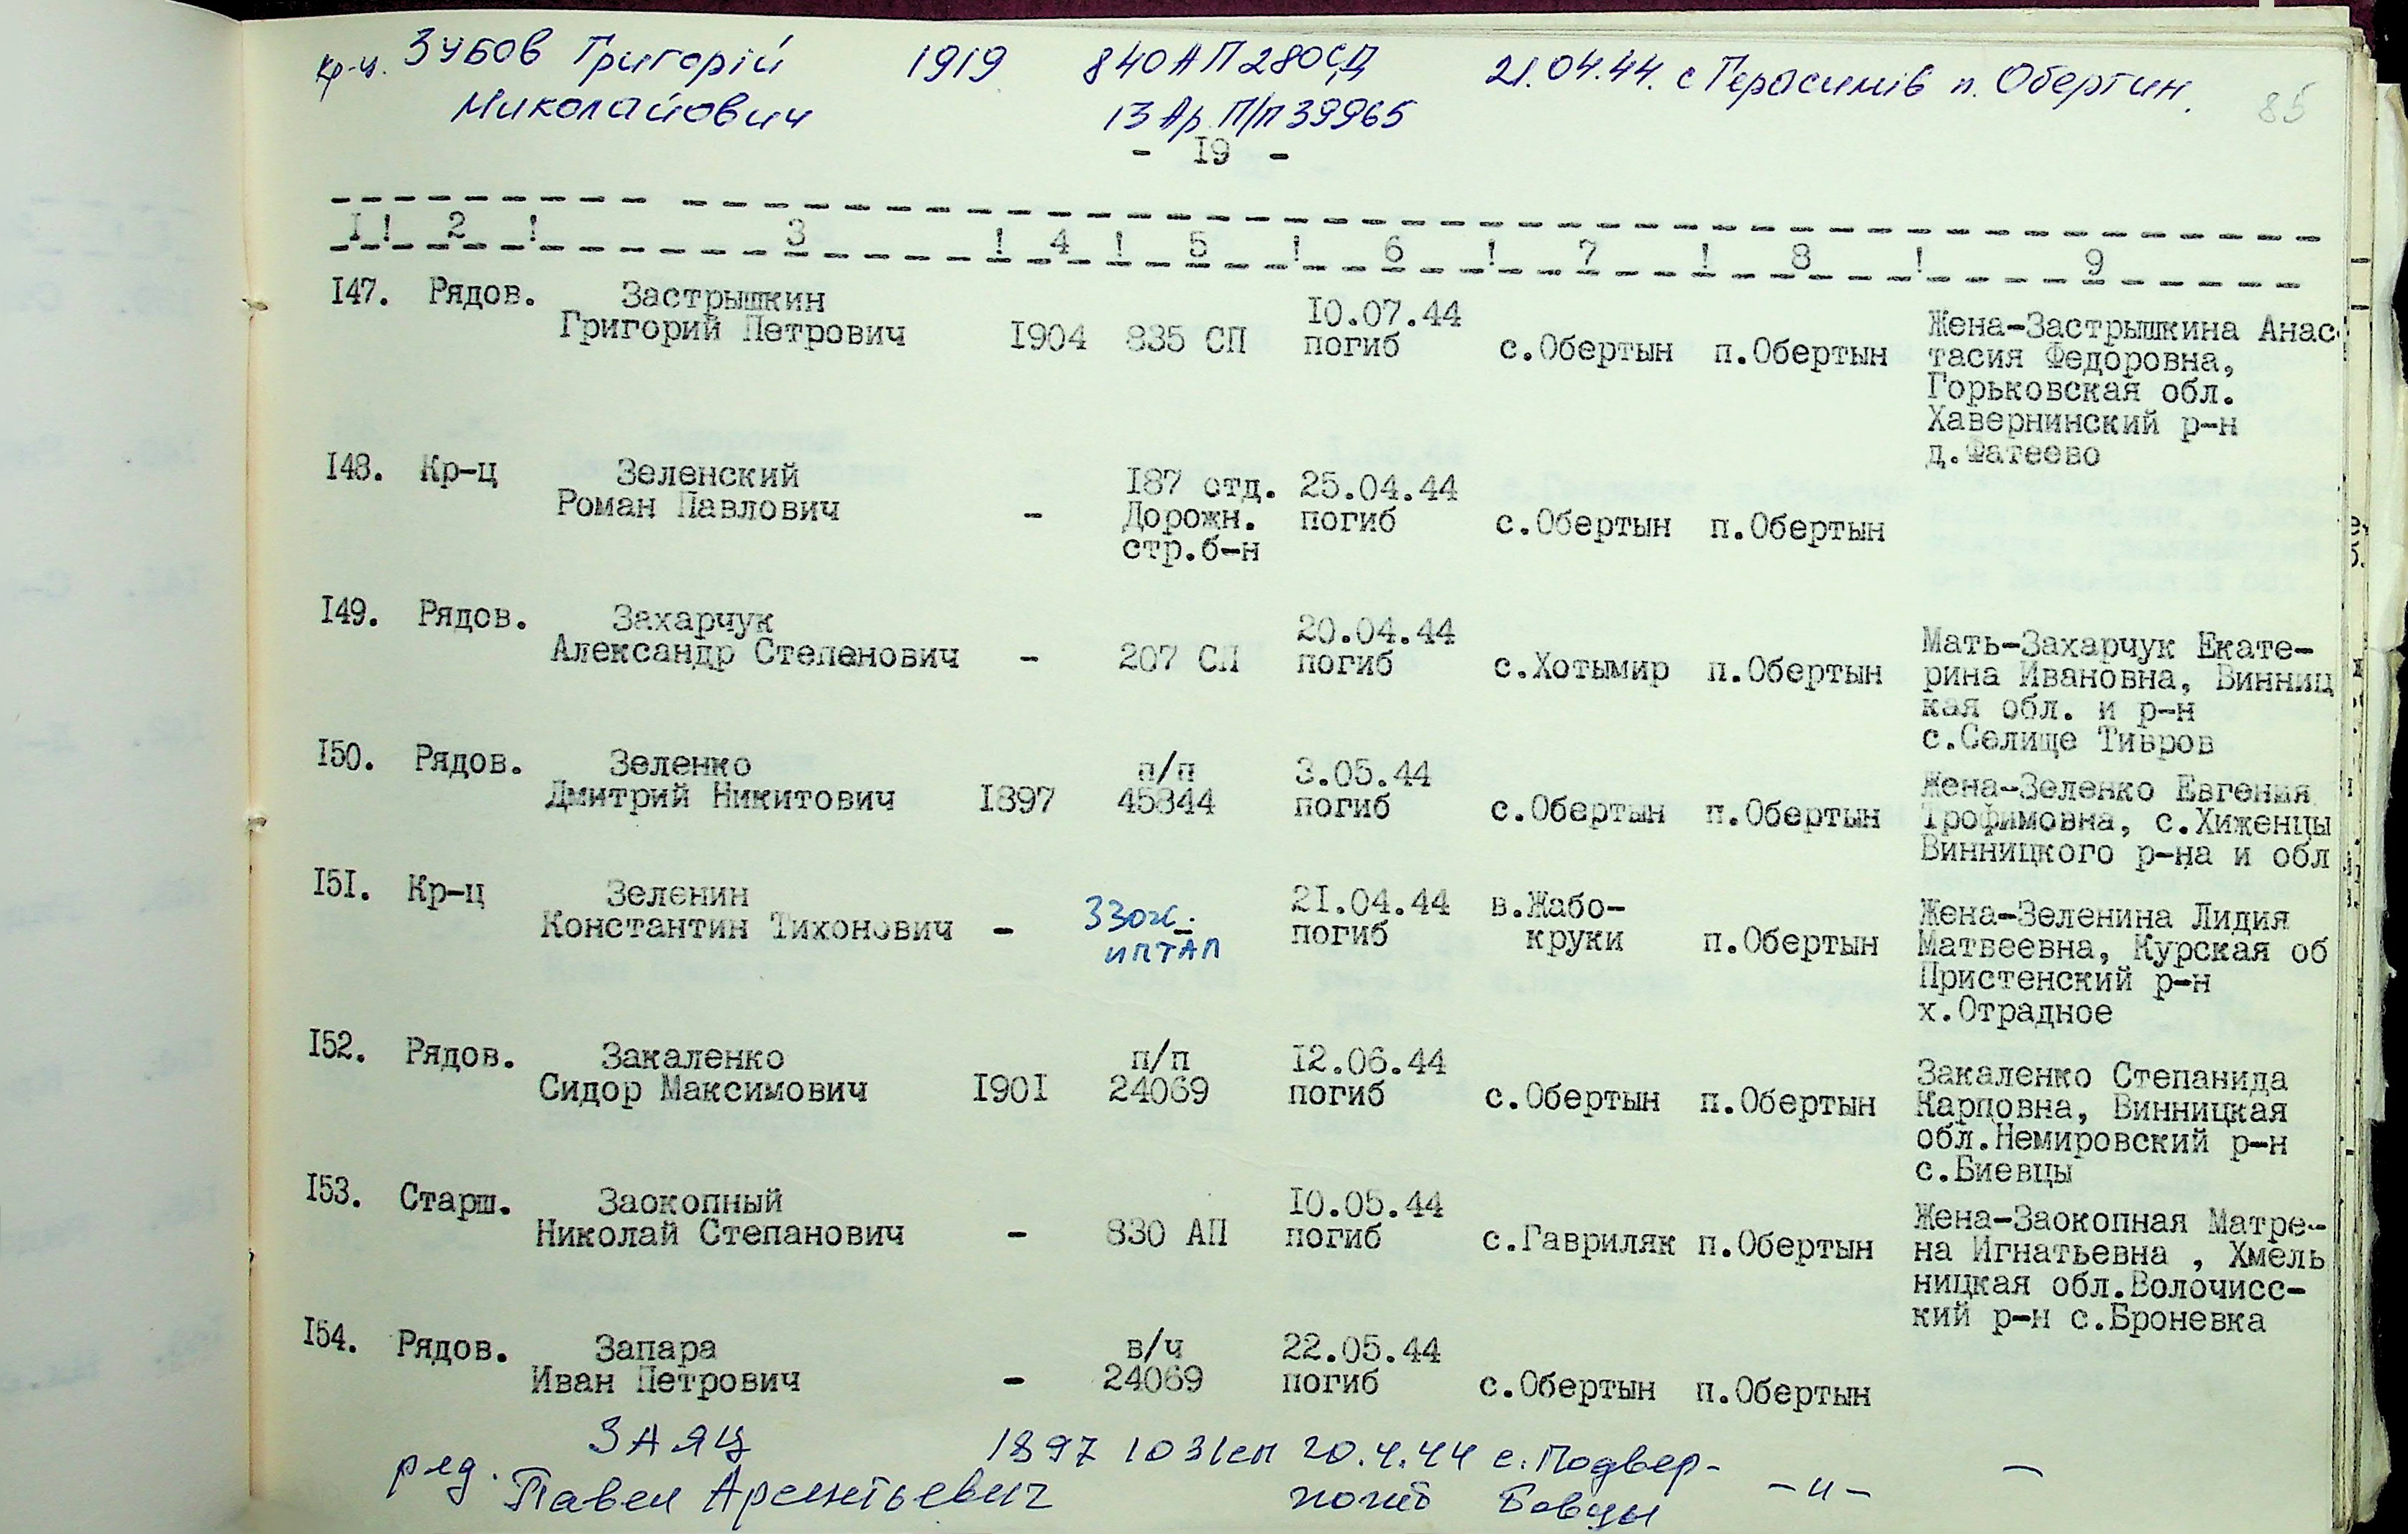 кр-ц. Зубов Григорій 1919 840 АП 280 СД 21.04.44. с Герасимів п. Обертин.
Миколайович 13 Ар. П/п 39965
85
- I9 -
I ! 2 ! 3 ! 4 ! 5 ! 6 ! 7 ! 8 ! 9
I47. Рядов. Застрышкин 10.07.44 Жена-Застрышкина Анас-
Григорий Петрович I904 835 СП погиб с.Обертын п.Обертын тасия Федоровна,
Горьковская обл.
Хавернинский р-н
д.Фатеево
I48. Кр-ц Зеленский I87 отд. 25.04.44
Роман Павлович - Дорожн. погиб с.Обертын п.Обертын
стр.б-н
I49. Рядов. Захарчук 20.04.44 Мать-Захарчук Екате-
Александр Степенович - 207 СП погиб с.Хотымир п.Обертын рина Ивановна, Винниц
кая обл. и р-н
с.Селище Тивров
I50. Рядов. Зеленко п/п 3.05.44 Жена-Зеленко Евгения
Дмитрий Никитович I897 45844 погиб с.Обертын п.Обертын Трофимовна, с.Хиженцы
Винницкого р-на и обл
I5I. Кр-ц Зеленин 21.04.44 в.Жабо- Жена-Зеленина Лидия
Константин Тихонович - ИПТАП погиб круки п.Обертын Матвеевна, Курская об
Пристенский р-н
х.Отрадное
I52. Рядов. Закаленко п/п I2.06.44 Закаленко Степанида
Сидор Максимович I90I 24069 погиб с.Обертын п.Обертын Карповна, Винницкая
обл.Немировский р-н
с.Биевцы
I53. Старш. Заокопный I0.05.44 Жена-Заокопная Матре-
Николай Степанович - 830 АП погиб с.Гавриляк п.Обертын на Игнатьевна , Хмель
ницкая обл.Волочисс-
кий р-н с.Броневка
I54. Рядов. Запара в/ч 22.05.44
Иван Петрович - 24069 погиб с.Обертын п.Обертын
ряд. Заяц 1897 1031сп 20.4.44 с.Подвер-
Павел Арсентьевич погиб бовцы -"- -